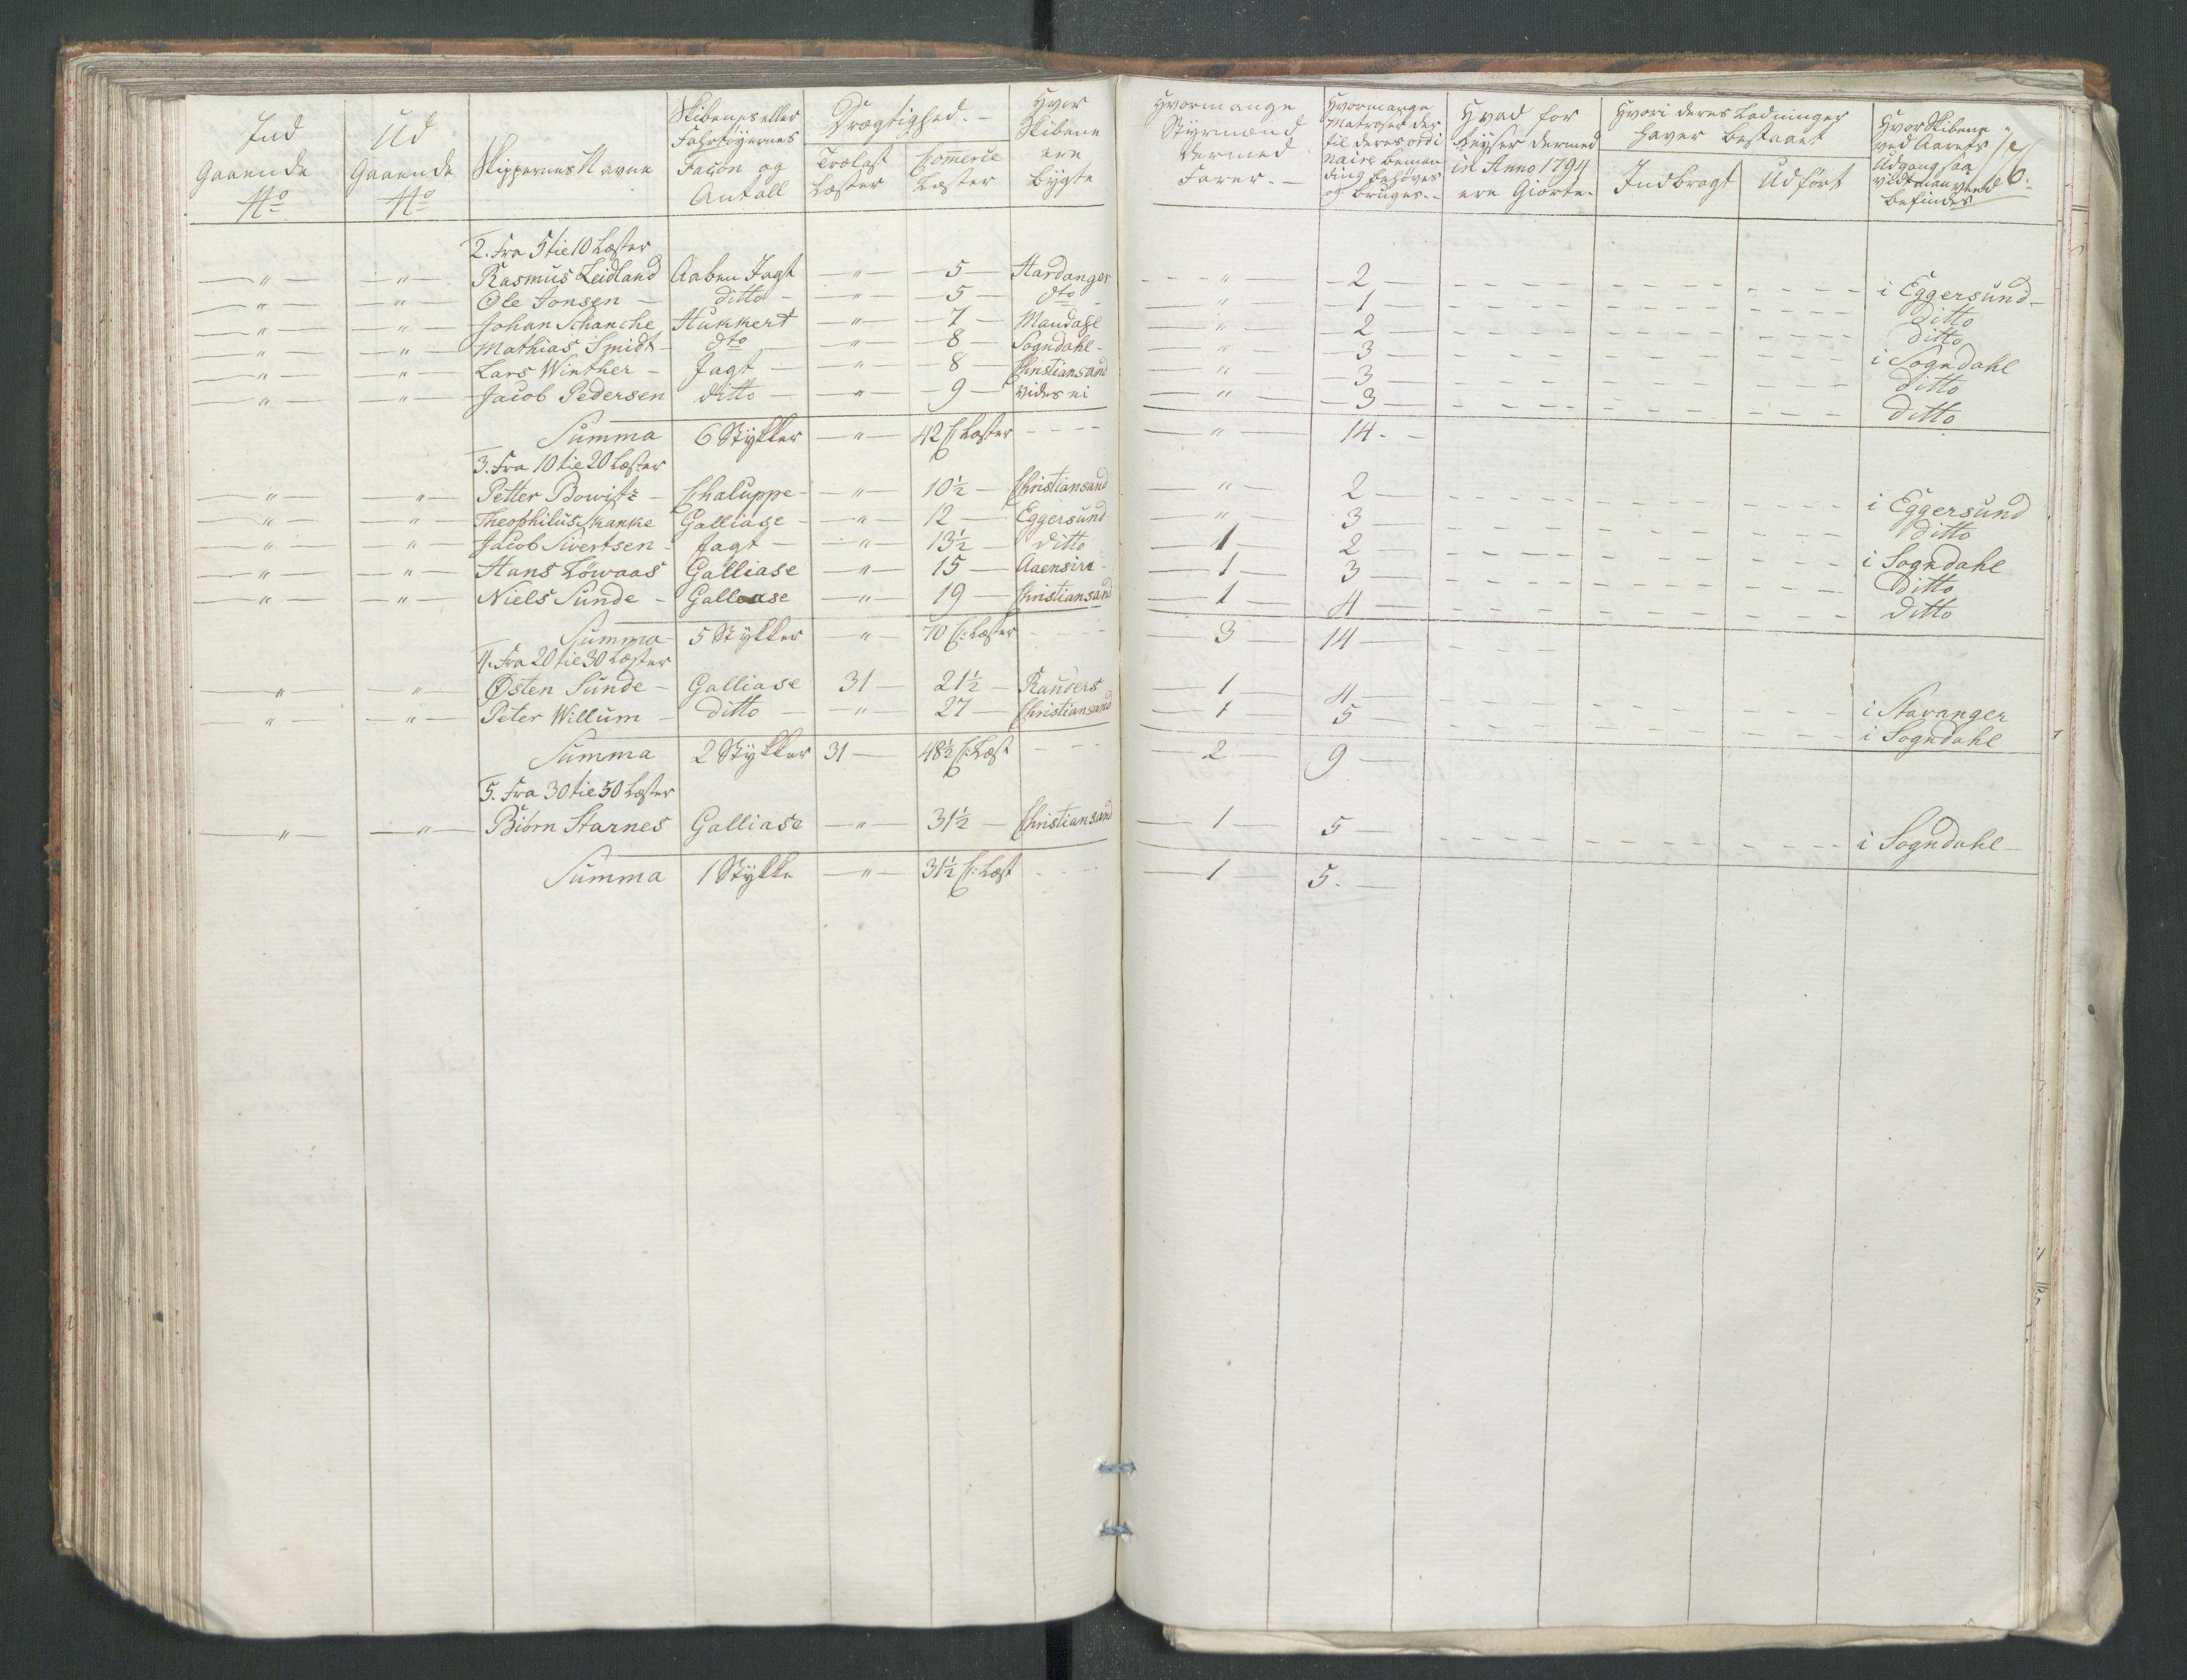 Ind Gaaende No | Ud Gaaende No | Skippernes Navne | Skibenes eller Fahrtöyernes Façon og Antall | Drægtighed.- Trælast Læster | Commerce Læster | Hvor Skibene ere bÿgte | Hvormange Styrmænd dermed Farer.- | Hvormange Matroser der til deres ordinaire bemanding behøves og bruges.- | Hvad for Reÿser dermed in Anno 1794 ere Giorte. | Hvori deres Ladninger haver bestaaet Indbragt | Udført | Hvor Skibene ved Aarets Udgang saa vidt man veed befindes
176.
2. Fra 5 tie 10 Læster
— " — | — " — | Rasmus Leidland | Aaben Jagt | — " — | 5 | Hardanger | " | 2 | - - - | - - - | - - - | i Eggersund
— " — | — " — | Ole Jonsen | ditto | — " — | 5 | dto | " | 1 | - - - | - - - | - - - | ditto
— " — | — " — | Johan Schanche | Hukkert | — " — | 7 | Mandahl | " | 2 | - - - | - - - | - - - | ditto
— " — | — " — | Mathias Smidt | dto | — " — | 8 | Sogndahl | " | 3 | - - - | - - - | - - - | i Sogndahl
— " — | — " — | Lars Winther | Jagt | — " — | 8 | Christiansand | " | 3 | - - - | - - - | - - - | ditto
— " — | — " — | Jacob Pedersen | ditto | — " — | 9 | vides ei | " | 3 | - - - | - - - | - - - | ditto
Summa | 6 Stÿkker | — " — | 42 C: Læster | - - - | " | 14.
3. Fra 10 tie 20 Læster
— " — | — " — | Petter Bowitz | Chaluppe | — " — | 10½ | Christiansand | " | 2 | - - - | - - - | - - - | i Eggersund
— " — | — " — | Theophilus Skanke | Galliase | — " — | 12 | Eggersund | " | 3 | - - - | - - - | - - - | ditto
— " — | — " — | Jacob Sivertsen | Jagt | — " — | 13½ | ditto | 1 | 2 | - - - | - - - | - - - | i Sogndahl
— " — | — " — | Hans Löwaas | Galliase | — " — | 15 | Aaensira | 1 | 3 | - - - | - - - | - - - | ditto
— " — | — " — | Niels Sunde | Gallease | — " — | 19 | Christiansand | 1 | 4 | - - - | - - - | - - - | ditto
Summa | 5 Stÿkker | " | 70 C: Læster | - - - | 3 | 14
4. Fra 20 tie 30 Læster
— " — | — " — | Østen Sunde | Galliase | 31 | 21½ | Randers | 1 | 4 | - - - | - - - | - - - | i Stavanger
— " — | — " — | Peter Willum | ditto | — " — | 27 | Christiansand | 1 | 5 | - - - | - - - | - - - | i Sogndahl
Summa | 2 Stÿkker | 31 | 48½ C: Læst | - - - | 2 | 9
5. Fra 30 tie 50 Læster
— " — | — " — | Biørn Starnes | Galliase | — " — | 31½ | Christiansand | 1 | 5 | - - - | - - - | - - - | i Sogndahl
Summa | 1 Stÿkke | — " — | 31½ C: Læst | - - - | 1 | 5.